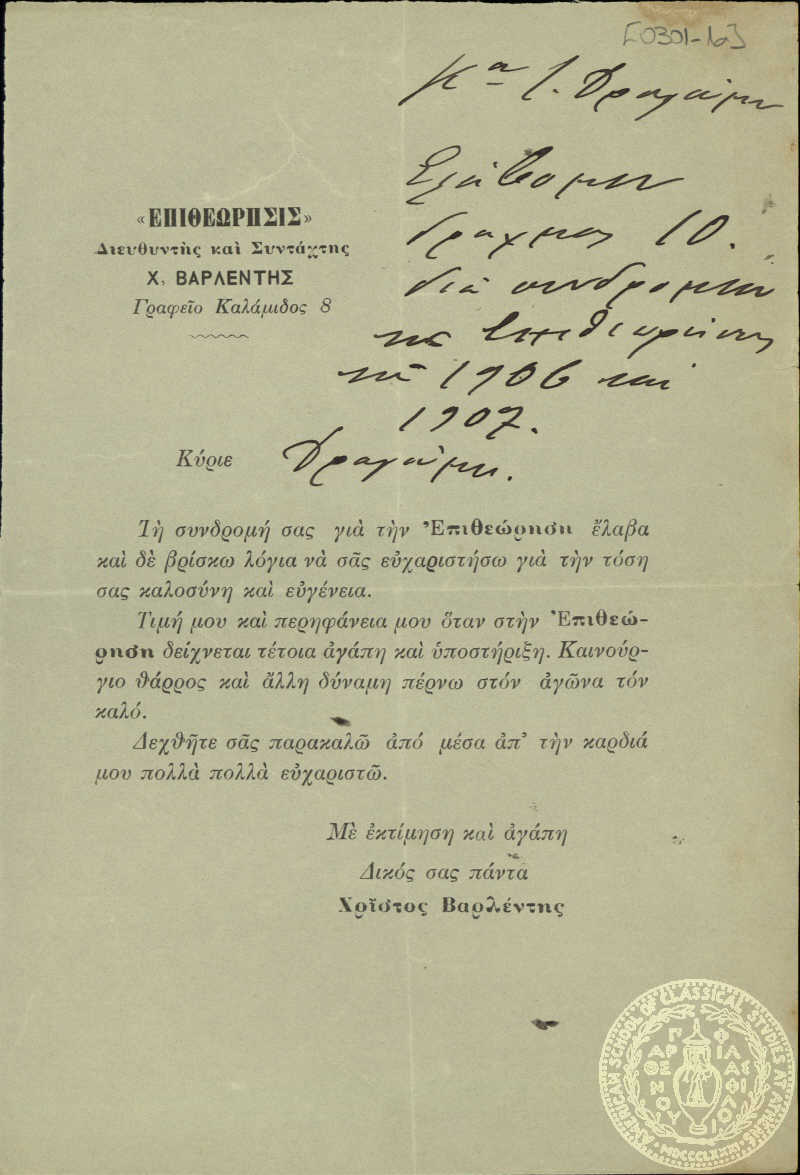 [0301-1a]
Κον Ι. Δραγούμην
Ελάβομεν
δραχμας 10.
διά συνδρομήν
της Επιθεωρήσεως
του 1906 και
1907.
«ΕΠΙΘΕΩΡΗΣΙΣ»
Διευθυντὴς καὶ Συντάχτης
Χ. ΒΑΡΛΕΝΤΗΣ
Γραφεῖο Καλάμιδος 8
Κύριε Δραγούμη.
Τὴ συνδρομή σας γιὰ τὴν Ἐπιθεώρηση ἔλαβα
καὶ δὲ βρίσκω λόγια νὰ σᾶς εὐχαριστήσω γιὰ τὴν τόση
σας καλοσύνη καὶ εὐγένεια.
Τιμή μου καὶ περηφάνεια μου ὅταν στὴν Ἐπιθεώ-
ρηση δείχνεται τέτοια ἀγάπη καὶ ὑποστήριξη. Καινούρ-
γιο θάρρος καὶ ἄλλη δύναμη πέρνω στόν ἀγῶνα τόν
καλό.
Δεχθῆτε σᾶς παρακαλῶ ἀπό μέσα ἀπ' τὴν καρδιά
μου πολλὰ πολλὰ εὐχαριστῶ.
Μὲ ἐκτίμηση καὶ ἀγάπη
Δικός σας πάντα
Χρῖστος Βαρλέντης
AMERICAN SCHOOL OF CLASSICAL STUDIES AT ATHENS
ΠΑΡΘΕΝΟΥ ΦΙΛΑΣ ΦΙΛΟΙ
MDCCCLXXXI